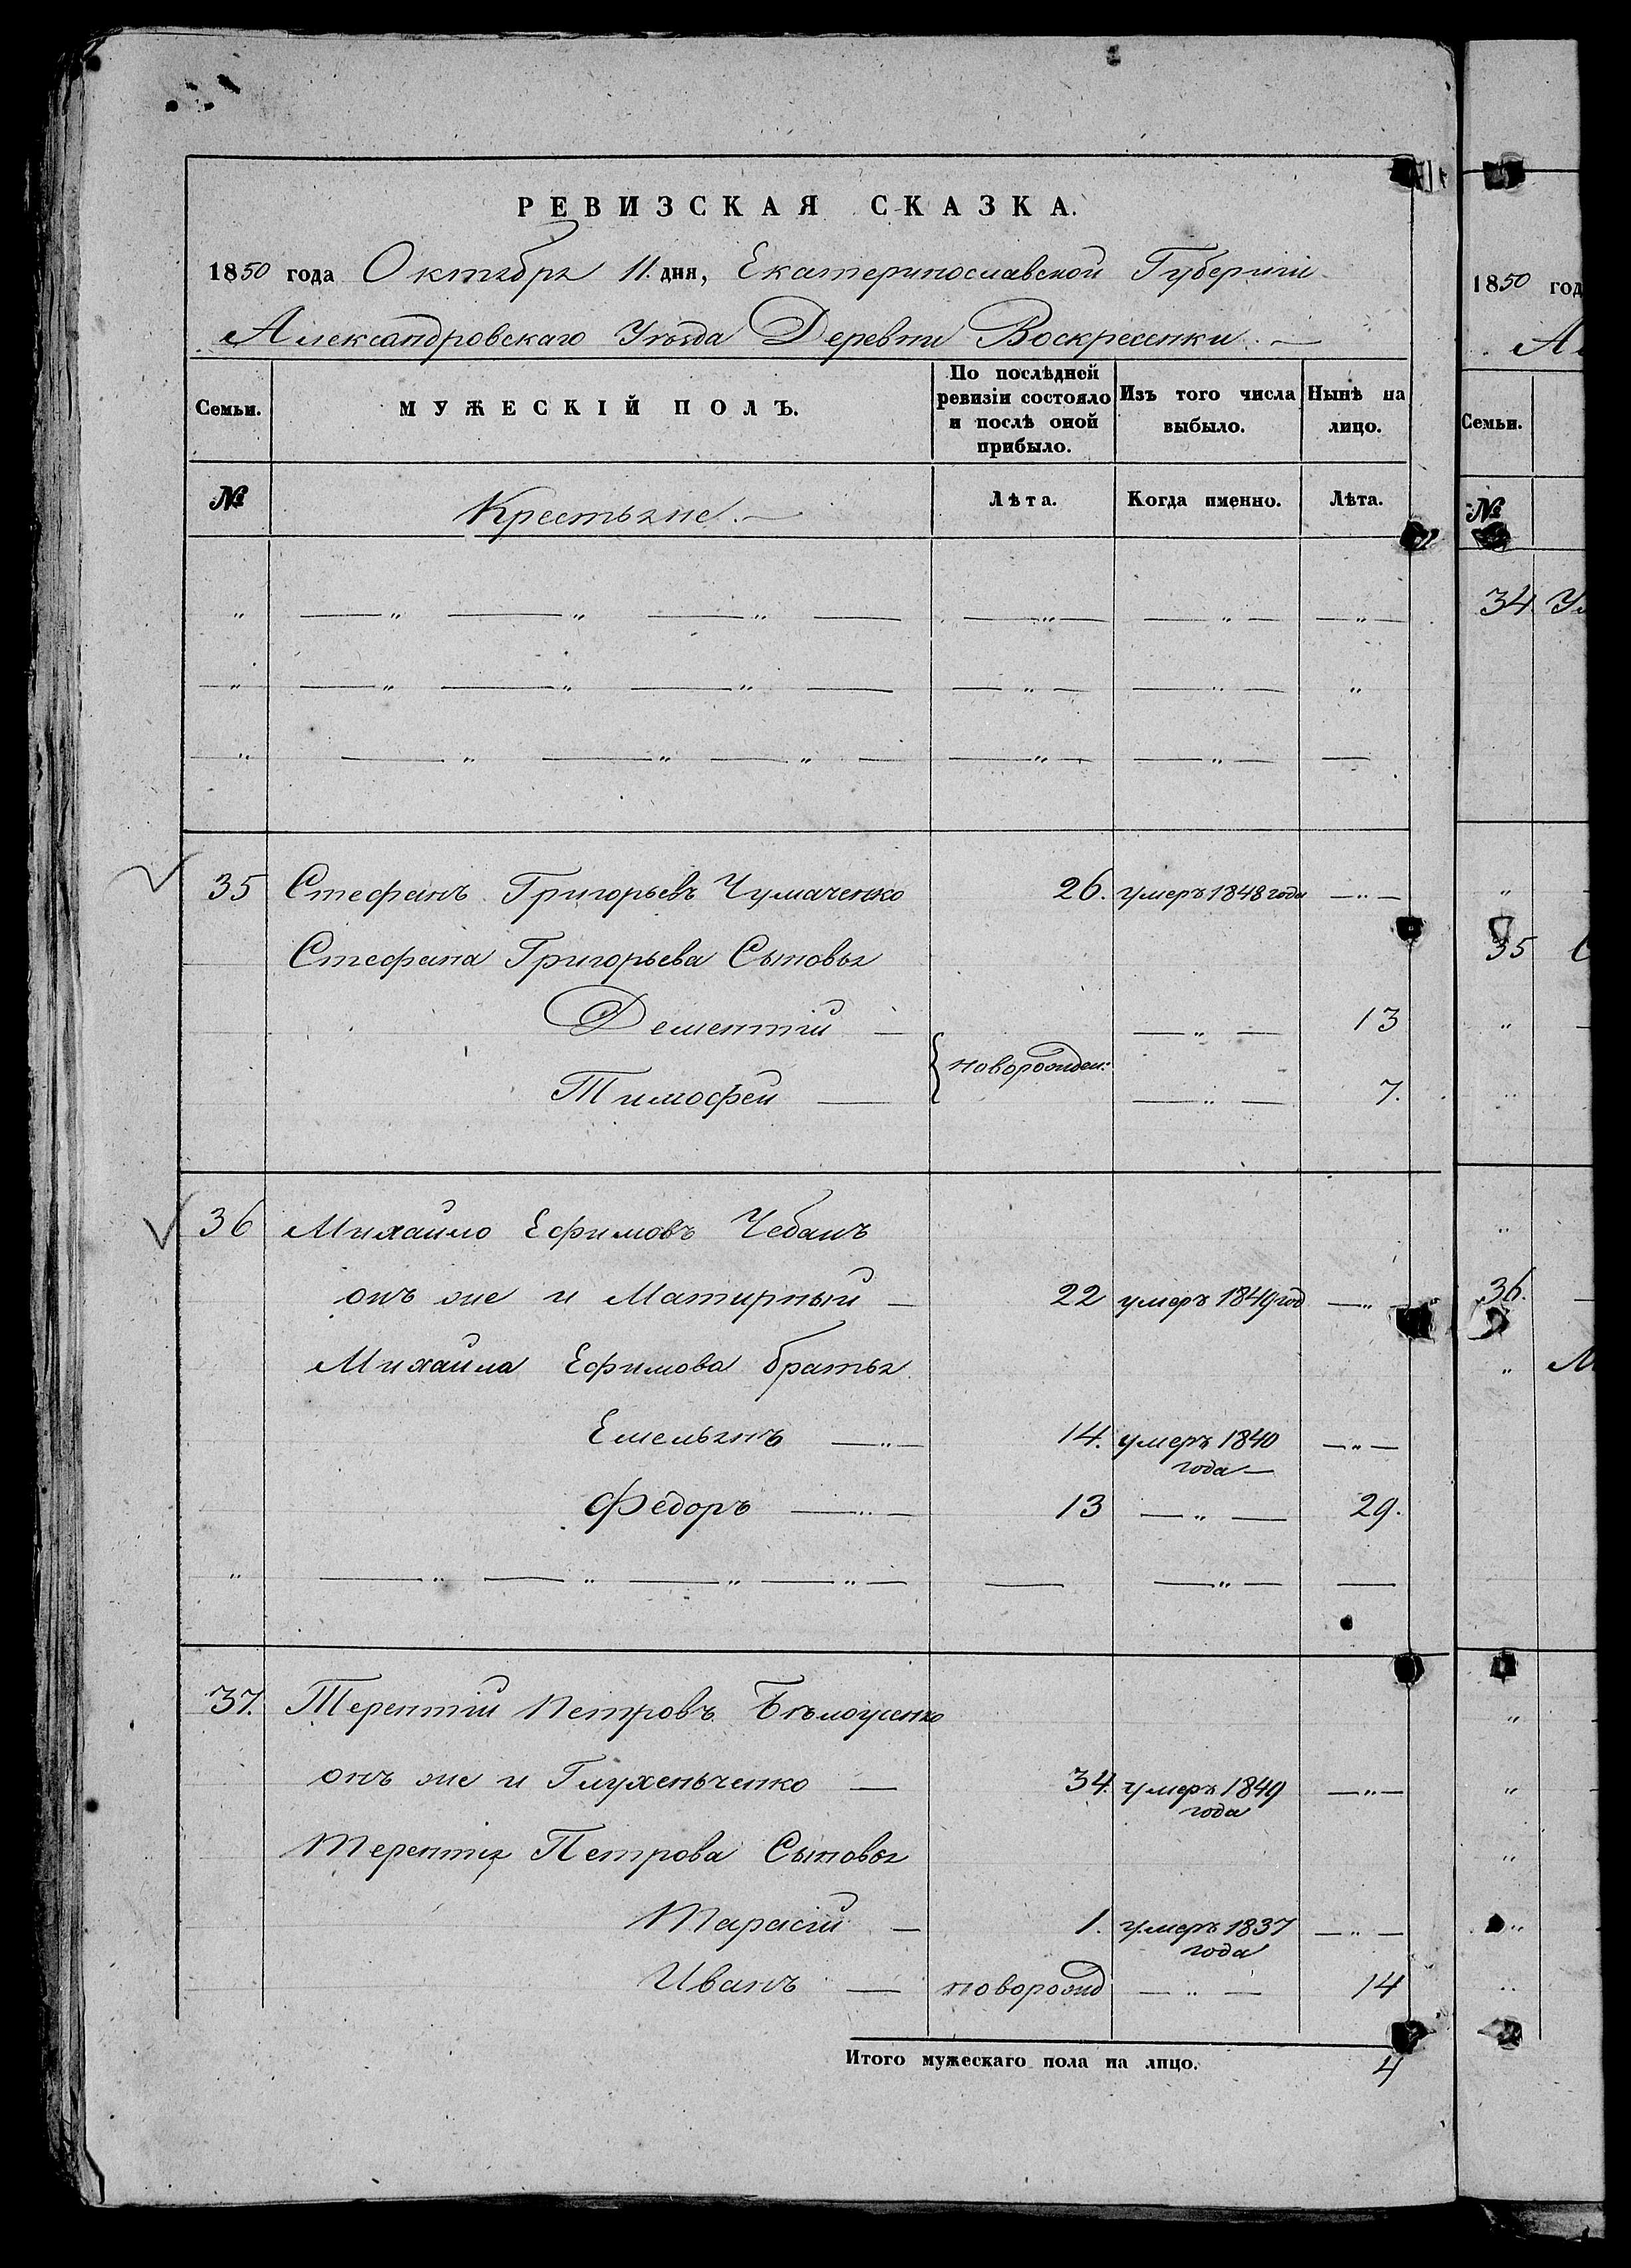 РЕВИЗСКАЯ СКАЗКА.
1850 года Октября 11. дня, Екатеринославской Губерніи
Александровскаго Уѣзда Деревни Воскресенки. —
Семьи. МУЖЕСКІЙ ПОЛЪ. По послѣдней ревизіи состояло и послѣ оной прибыло. Изъ того числа выбыло. Нынѣ на лицо.
№ Крестьяне. — Лѣта. Когда именно. Лѣта.
35 Стефанъ Григорьевъ Чумаченко 26. умеръ 1848 года — " —
Стефана Григорьева Сыновья
Дементій — — " — 13
новорожден:
Тимофей — — " — 7.
36 Михайло Ефимовъ Чебанъ
онъ же и Матирный — 22 умеръ 1849 год — " —
Михайла Ефимова братья
Емельянъ — " — 14. умеръ 1840 — " —
года —
Федоръ — " — 13 — " — 29.
37. Терентій Петровъ Бѣлоусенко
онъ же и Глухенъченко — 34. умеръ 1849 — " —
года
Терентія Петрова Сыновья
Тарасій — 1. умеръ 1837 — " —
года
Иванъ — новорожд — " — 14
Итого мужескаго пола на лицо. 4
1850 год
Семьи.
№
34
35
36.